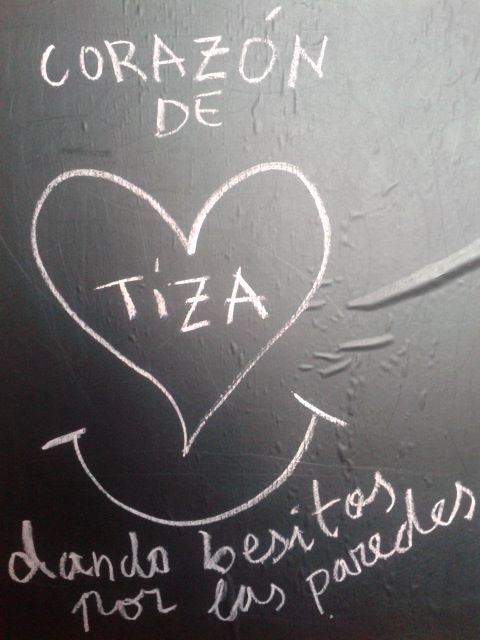 CORAZÓN
DE
TiZA
dando besitos
por las paredes